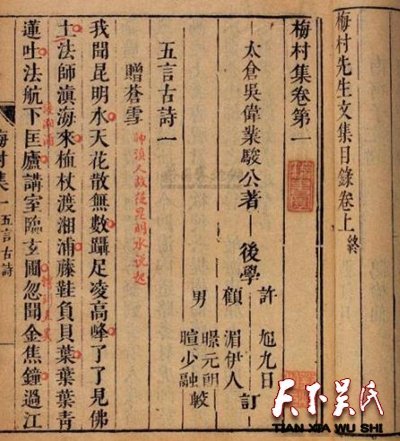 梅村先生文集目錄卷上終
梅村集卷第一
太倉吳偉業駿公著
後學
許旭九日
顧湄伊人
訂
男
暻元朗
暄少融
較
五言古詩一
贈蒼雪
師滇人故從昆明水說起
我聞昆明水天花散無數躡足凌高峰了了見佛
土法師滇海來植杖渡湘浦藤鞋負貝葉葉葉青
蓮吐法航下匡廬講室臨玄圃忽聞金焦鐘過江
梅村集一 五言古詩
天下吴氏
TIAN XIA WU SHI